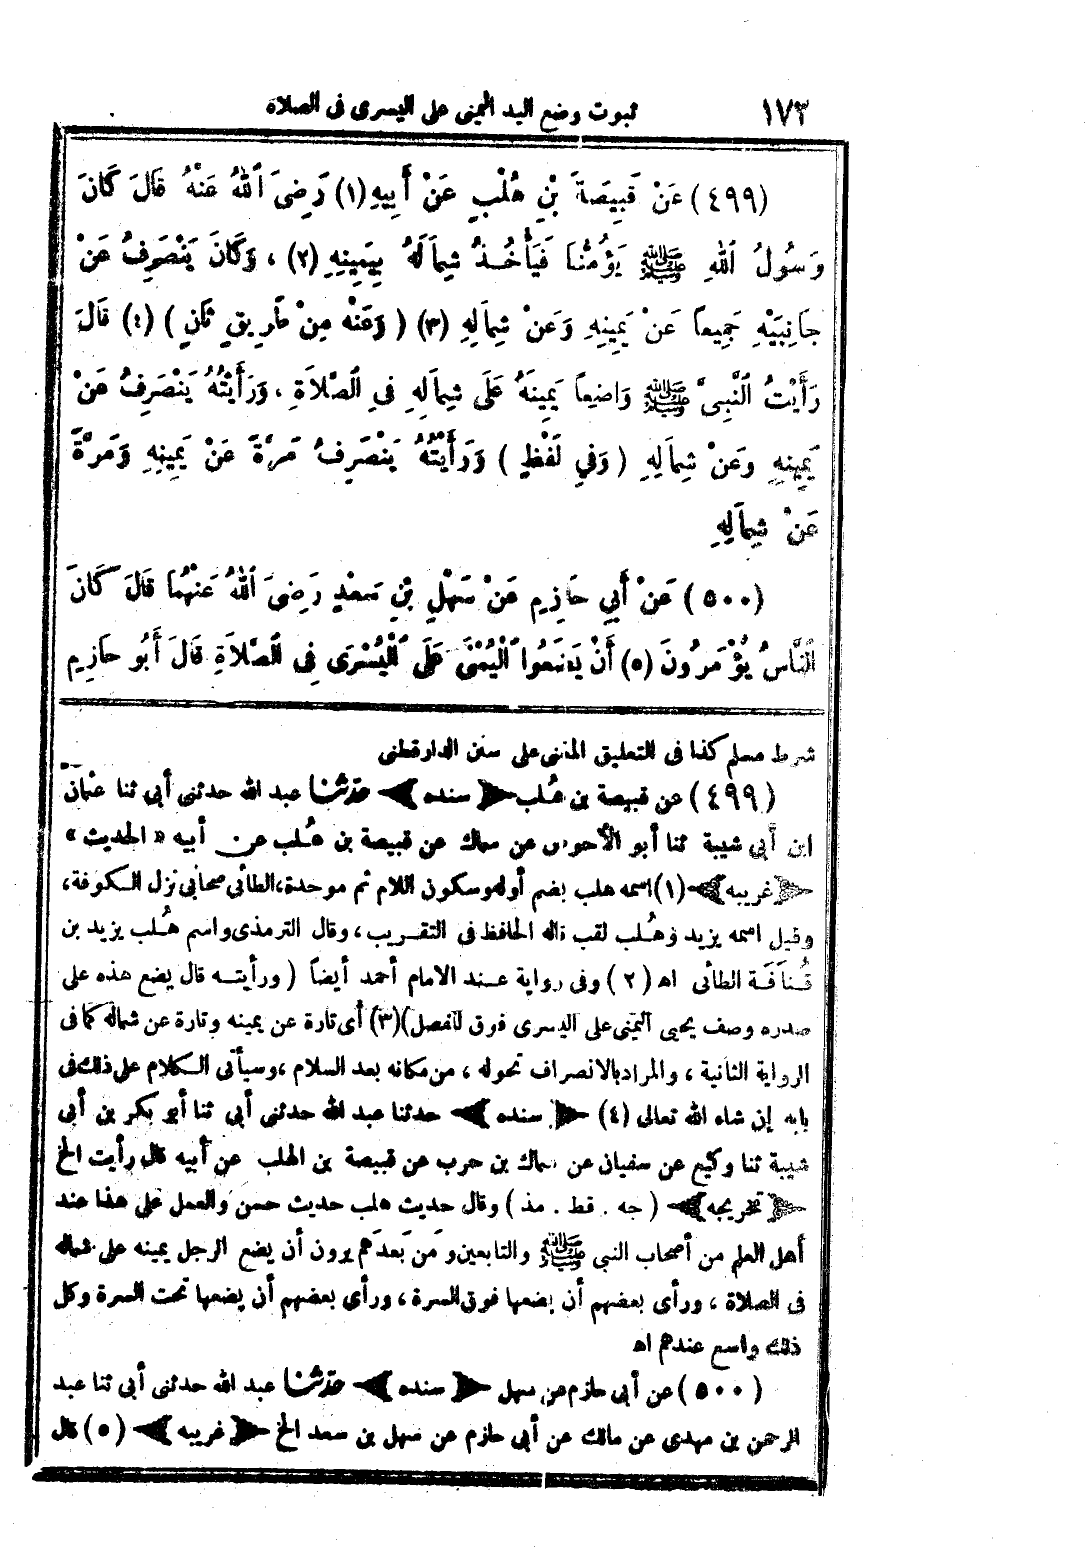 ١٧٣ ثبوت وضع اليد اليمنى على اليسرى فى الصلاة
(٤٩٩) عَنْ قَبِيصَةَ بْنِ هُلْبٍ عَنْ أَبِيهِ (١) رَضِىَ اللهُ عَنْهُ قَالَ كَانَ
رَسُولُ اللهِ ﷺ يَؤُمُّنَا فَيَأْخُذُ شِمَالَهُ بِيَمِينِهِ (٢) ، وَكَانَ يَنْصَرِفُ عَنْ
جَانِبَيْهِ جَمِيعاً عَنْ يَمِينِهِ وَعَنْ شِمَالِهِ (٣) ( وَعَنْهُ مِنْ طَرِيقٍ ثَانٍ ) (٤) قَالَ
رَأَيْتُ النَّبِىَّ ﷺ وَاضِعاً يَمِينَهُ عَلَى شِمَالِهِ فِى الصَّلاَةِ ، وَرَأَيْتُهُ يَنْصَرِفُ عَنْ
يَمِينِهِ وَعَنْ شِمَالِهِ ( وَفِي لَفْظٍ ) وَرَأَيْتُهُ يَنْصَرِفُ مَرَّةً عَنْ يَمِينِهِ وَمَرَّةً
عَنْ شِمَالِهِ
(٥٠٠) عَنْ أَبِي حَازِمٍ عَنْ سَهْلِ بْنِ سَعْدٍ رَضِىَ اللهُ عَنْهُمَا قَالَ كَانَ
النَّاسُ يُؤْمَرُونَ (٥) أَنْ يَضَعُوا الْيُمْنَى عَلَى الْيُسْرَى فِى الصَّلاَةِ قَالَ أَبُو حَازِمٍ
شرط مسلم كذا فى التعليق المغنى على سنن الدارقطنى
(٤٩٩) عن قبيصة بن هُلب ﴿ سنده ﴾ حدثنا عبد الله حدثنى أبى ثنا عثمان
ابن أبى شيبة ثنا أبو الأحوص عن سماك عن قبيصة بن هُلب عن أبيه « الحديث »
﴿ غريبه ﴾ (١) اسمه هلب بضم أوله وسكون اللام ثم موحدة، الطائى صحابى نزل الكوفة،
وقيل اسمه يزيد وهُلب لقب قاله الحافظ فى التقريب ، وقال الترمذى واسم هُلب يزيد بن
قُنافَة الطائى اهـ (٢) وفى رواية عند الامام أحمد أيضاً ( ورأيته قال يضع هذه على
صدره وصف يحيى اليمنى على اليسرى فوق المفصل) (٣) أى تارة عن يمينه وتارة عن شماله كما فى
الرواية الثانية ، والمراد بالانصراف تحوله ، من مكانه بعد السلام ، وسيأتى الكلام على ذلك فى
بابه إن شاء الله تعالى (٤) ﴿ سنده ﴾ حدثنا عبد الله حدثنى أبى ثنا أبو بكر بن أبى
شيبة ثنا وكيع عن سفيان عن سماك بن حرب عن قبيصة بن الهلب عن أبيه قال رأيت الخ
﴿ تخريجه ﴾ ( جه . قط . مذ ) وقال حديث هلب حديث حسن والعمل على هذا عند
أهل العلم من أصحاب النبى ﷺ والتابعين ومَن بَعدَهم يرون أن يضع الرجل يمينه على شماله
فى الصلاة ، ورأى بعضهم أن يضعها فوق السرة ، ورأى بعضهم أن يضعها تحت السرة وكل
ذلك واسع عندهم اهـ
(٥٠٠) عن أبى حازم عن سهل ﴿ سنده ﴾ حدثنا عبد الله حدثنى أبى ثنا عبد
الرحمن بن مهدى عن مالك عن أبى حازم عن سهل بن سعد الخ ﴿ غريبه ﴾ (٥) قال